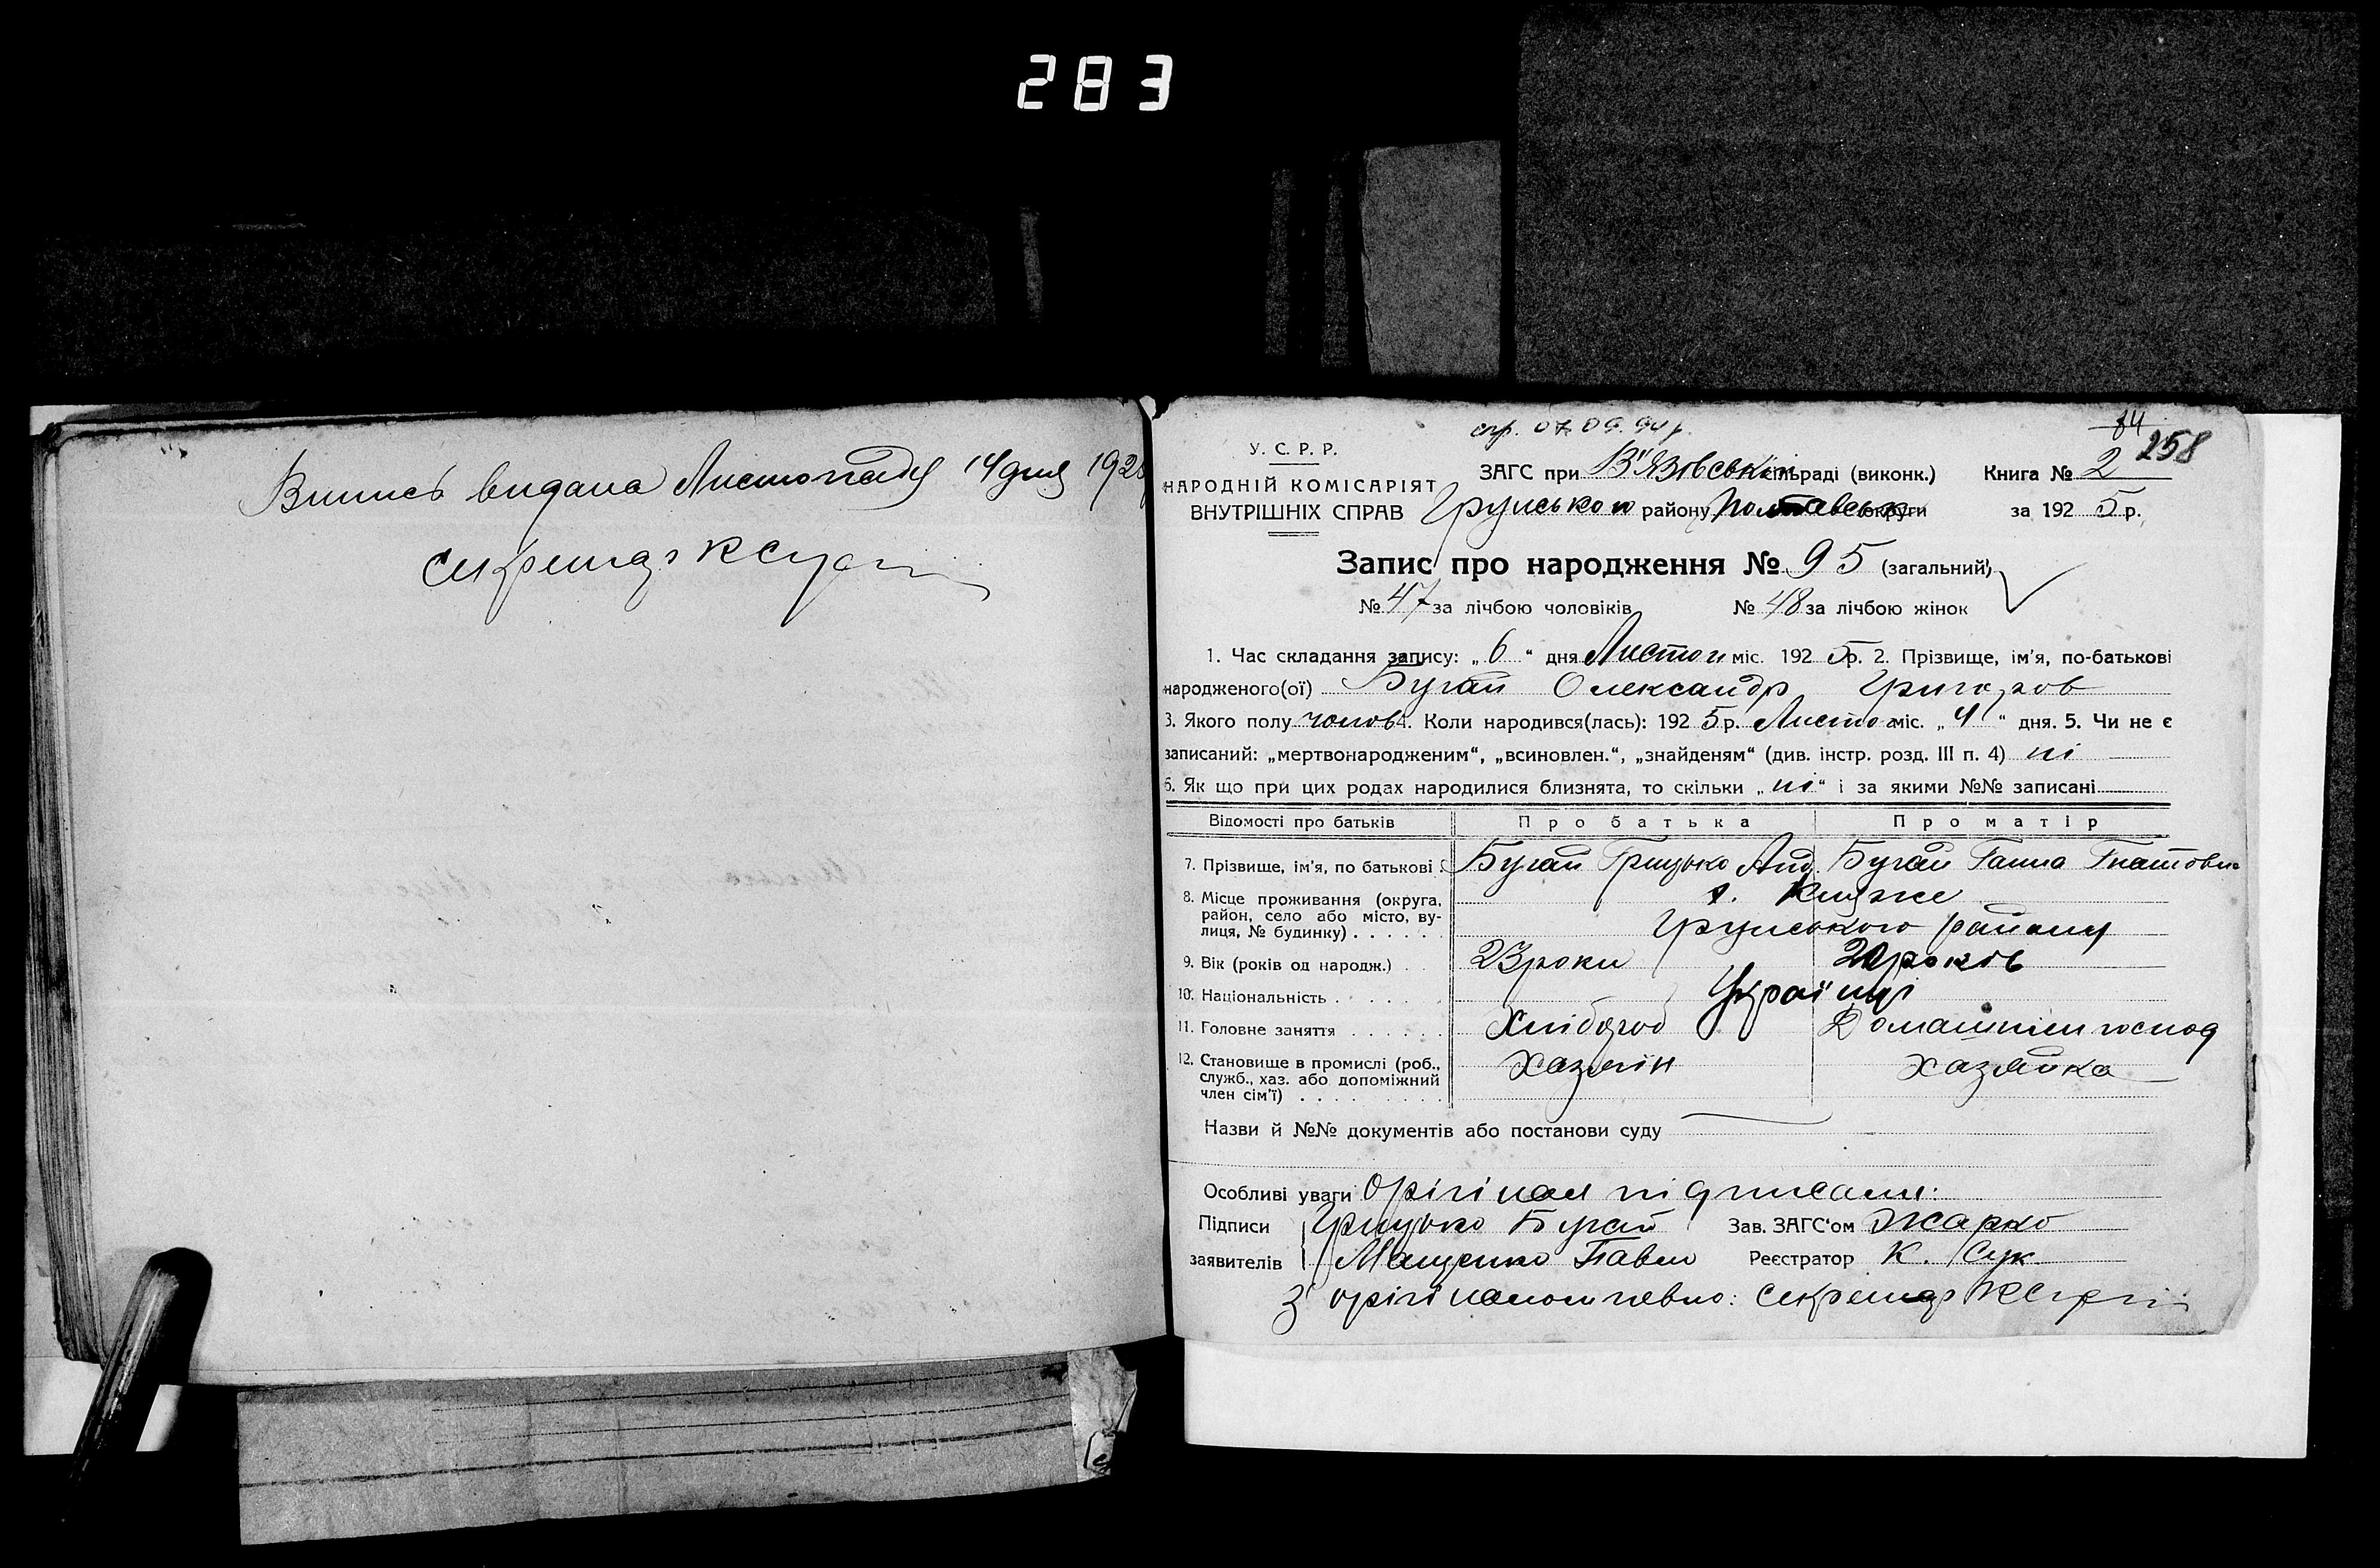 283
Випись видана Листопаду 14 дня 192
секретар
84
258
У. С. Р. Р.
НАРОДНІЙ КОМІСАРІЯТ
ВНУТРІШНІХ СПРАВ
ЗАГС при В'язівській сільраді (виконк.) Книга № 2
Грунською району Полтавськ округи за 192 5 р.
Запис про народження № 95 (загальний)
№ 47 за лічбою чоловіків № 48 за лічбою жінок
1. Час складання запису: „ 6 “ дня Листоп міс. 192 5 р. 2. Прізвище, ім'я, по-батькові
народженого(ої) Бугай Олександр Григоров
3. Якого полу чолов 4. Коли народився(лась): 192 5 р. Листоп міс. „ 4 “ дня. 5. Чи не є
записаний: „мертвонародженим“, „всиновлен.“, „знайденям“ (див. інстр. розд. III п. 4) ні
6. Як що при цих родах народилися близнята, то скільки „ ні “ і за якими №№ записані
Відомості про батьків Про батька Про матір
7. Прізвище, ім'я, по батькові Бугай Грицько Анд. Бугай Ганна Гнатовна
8. Місце проживання (округа, район, село або місто, вулиця, № будинку) х. Княже
Грунського району
9. Вік (років од народж.) 23 роки 20 років
10. Національність Українці
11. Головне заняття Хлібороб Домашнім господ
12. Становище в промислі (роб., служб., хаз. або допоміжний член сім'ї) Хазяїн Хазяйка
Назви й №№ документів або постанови суду
Особливі уваги Орігінал підписали:
Підписи заявителів Грицько Бугай Зав. ЗАГС'ом Жарко
Мащенко Павло Реєстратор К. Сук
З орігіналом певно: секретар